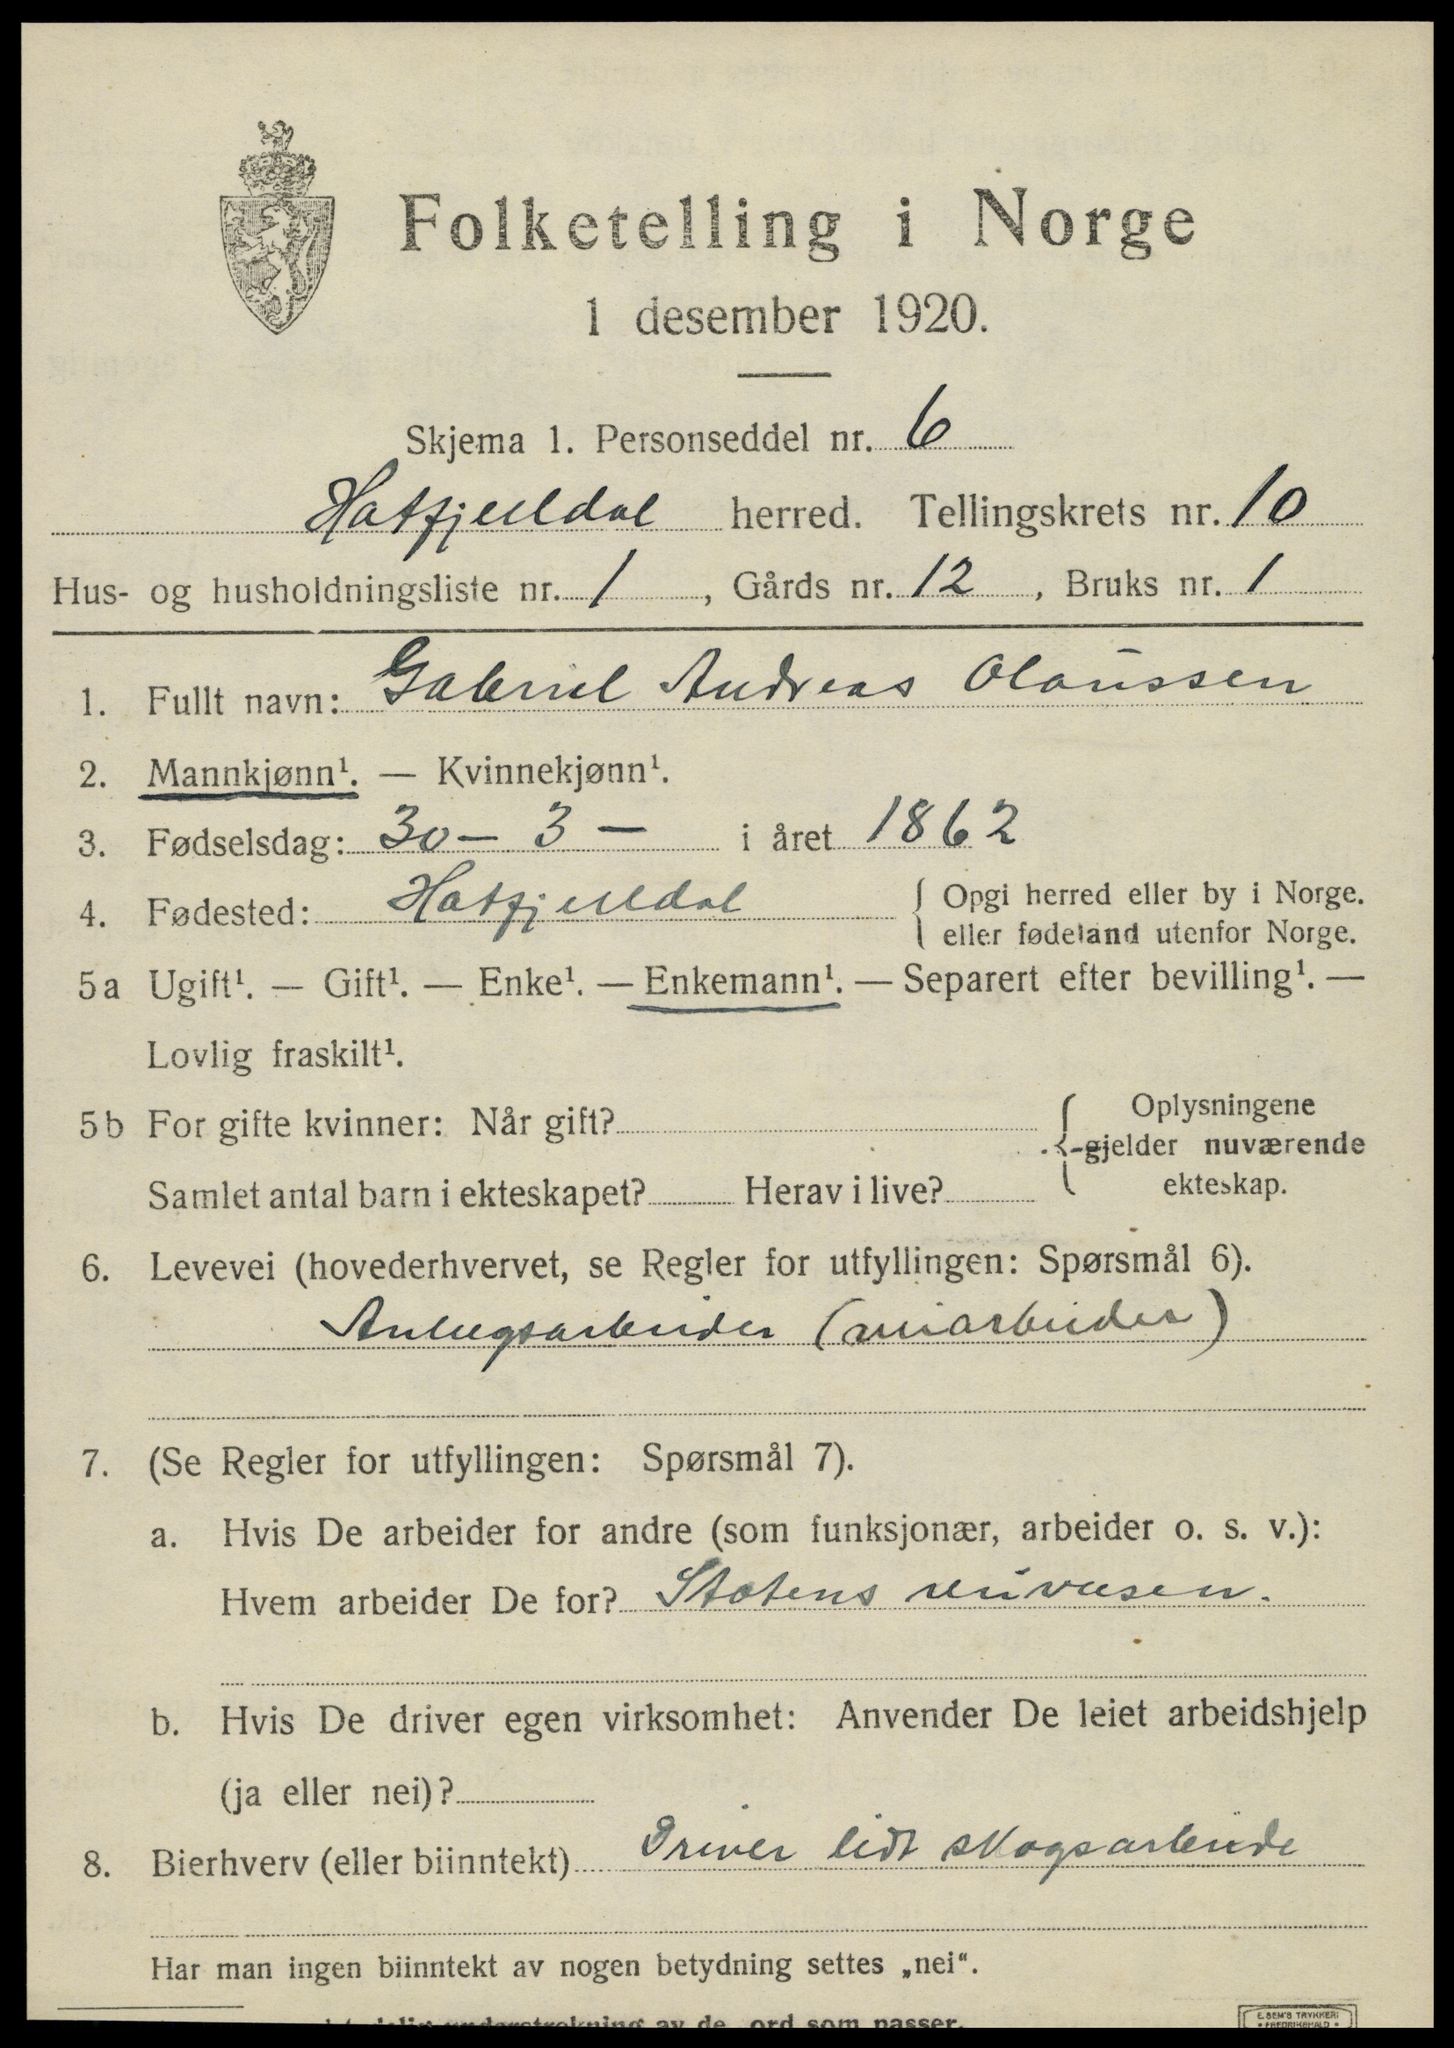 Folketelling i Norge
1 desember 1920.
Skjema 1. Personseddel nr. 6
Hatfjelldal herred. Tellingskrets nr. 10
Hus- og husholdningsliste nr. 1, Gårds nr. 12, Bruks nr. 1
1. Fullt navn: Gabriel Andreas Olaussen
2. Mannkjønn¹. — Kvinnekjønn¹.
3. Fødselsdag: 30 – 3 – i året 1862
4. Fødested: Hatfjelldal { Opgi herred eller by i Norge.
eller fødeland utenfor Norge.
5a Ugift¹. — Gift¹. — Enke¹. — Enkemann¹. — Separert efter bevilling¹. —
Lovlig fraskilt¹.
5b For gifte kvinner: Når gift? { Oplysningene
gjelder nuværende
Samlet antal barn i ekteskapet? Herav i live? ekteskap.
6. Levevei (hovederhvervet, se Regler for utfyllingen: Spørsmål 6).
Anlegsarbeider (veiarbeider)
7. (Se Regler for utfyllingen: Spørsmål 7).
a. Hvis De arbeider for andre (som funksjonær, arbeider o. s. v.):
Hvem arbeider De for? Statens veivæsen.
b. Hvis De driver egen virksomhet: Anvender De leiet arbeidshjelp
(ja eller nei)?
8. Bierhverv (eller biinntekt) Driver lidt skogsarbeide
Har man ingen biinntekt av nogen betydning settes „nei“.
understrekning av de ord som passer.
E. SEM'S TRYKKERI
• FREDRIKSHALD •